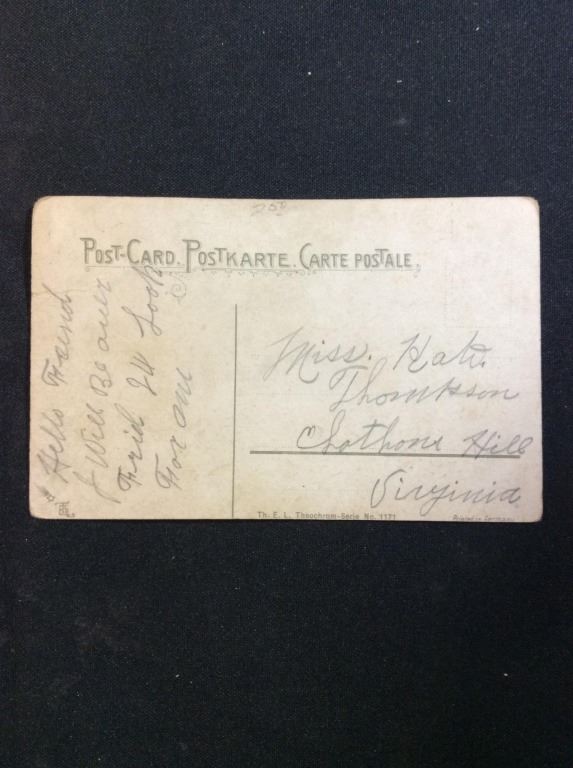 250
POST-CARD. POSTKARTE. CARTE POSTALE.
Hello Freind
I Will Be over
Frid 24 Look
For me
Miss. Kate.
Thompson
Chothone Hill
Virginia
Th. E. L. Theochrom-Serie No. 1171
Printed in Germany